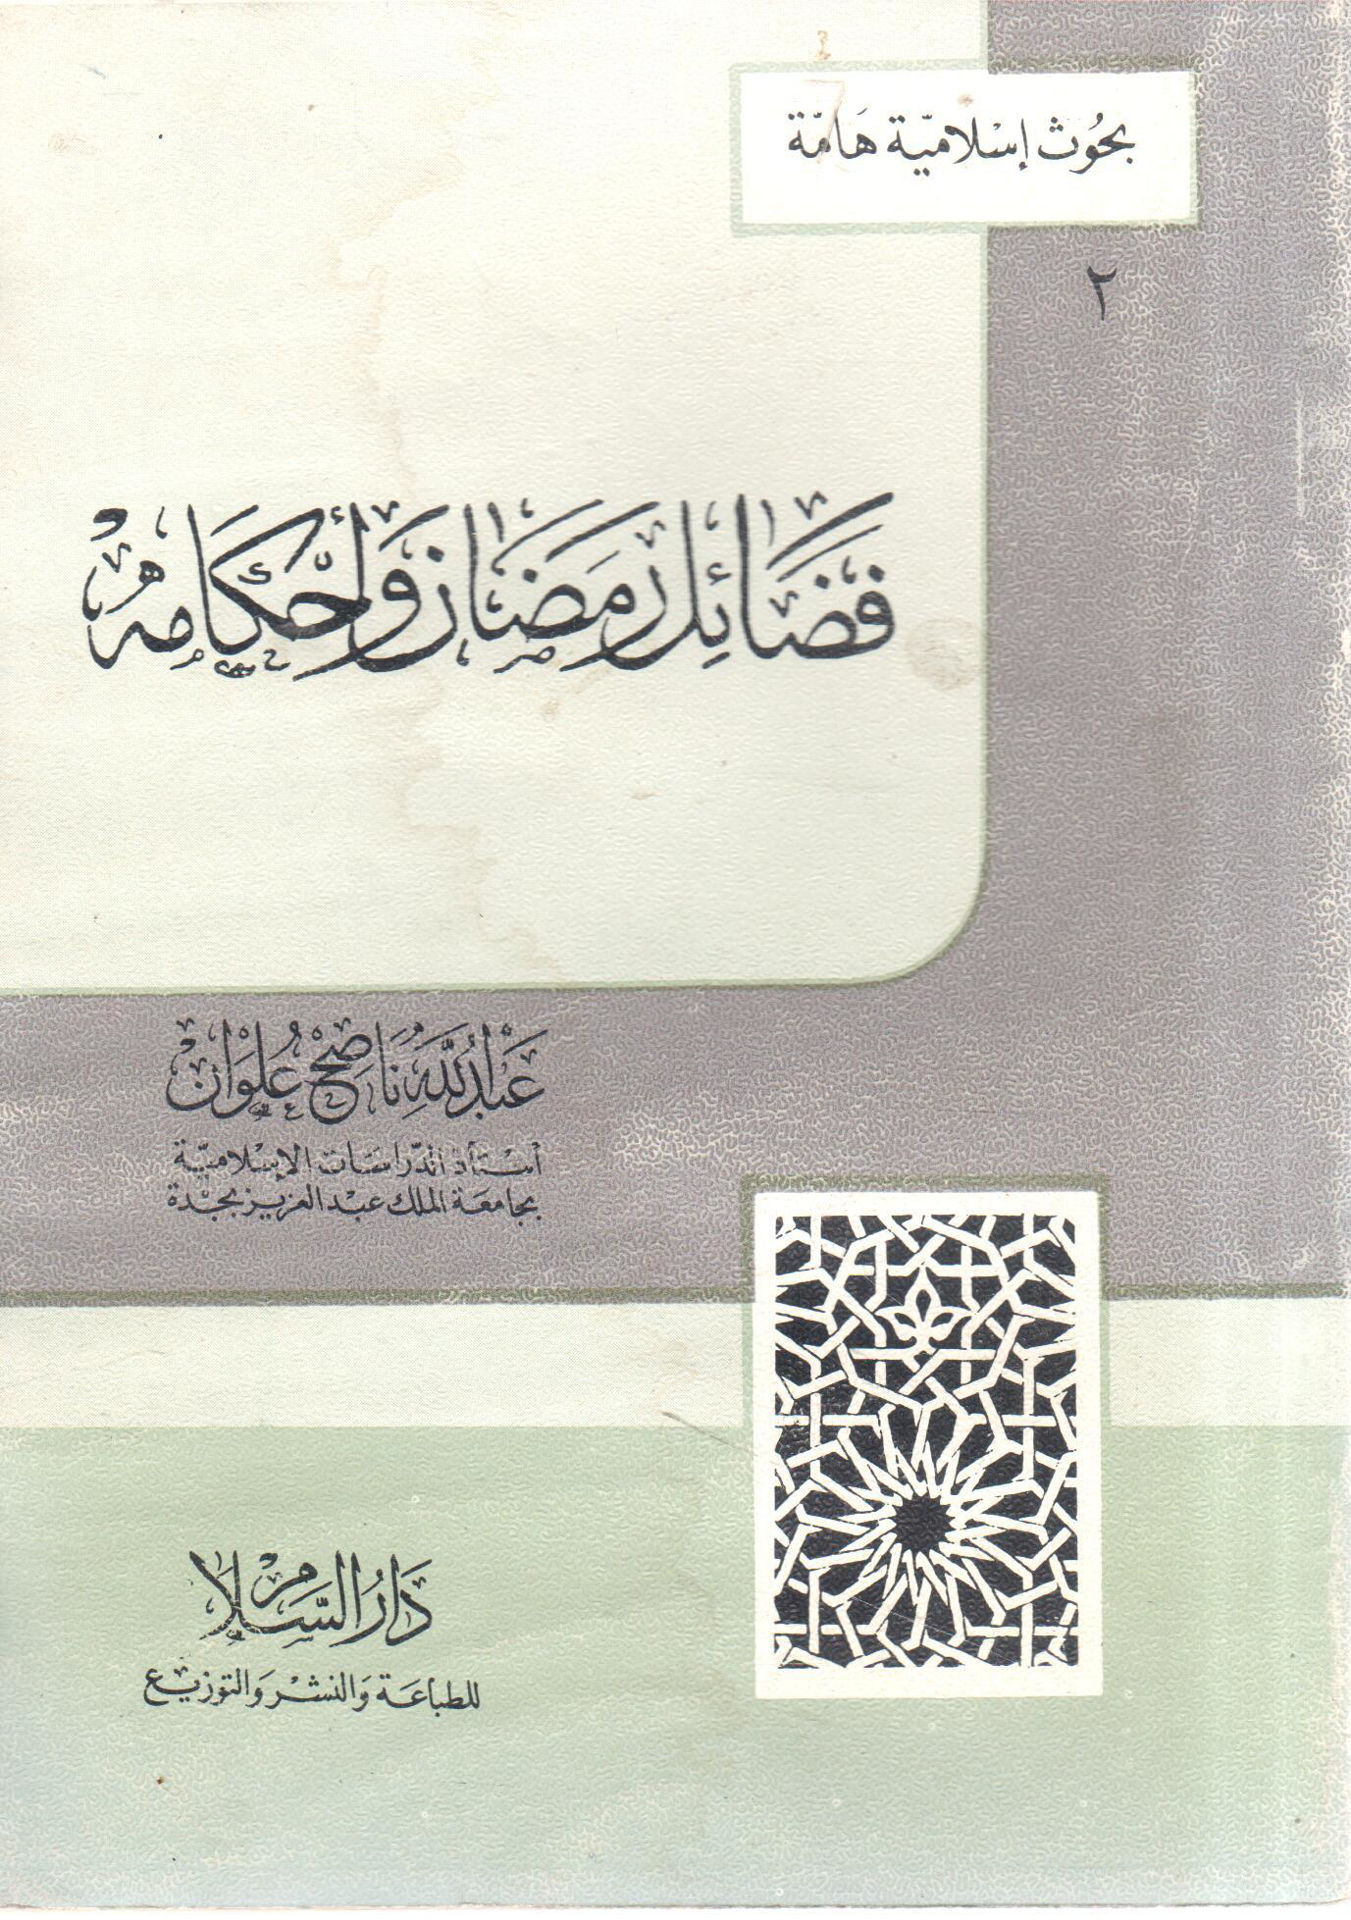 بحُوث إسْلاميّة هَامّة
٢
فَضَائِل رَمَضَان وَأحْكَامه
عَبْد اللَّه نَاصِح عُلْوَان
أستاذ الدّراسَات الإسْلاميّة
بجامعَة الملك عبْد العزيز بجدّة
دَارُ السَّلَام
للطبَاعَة وَالنشْر وَالتوزيْع